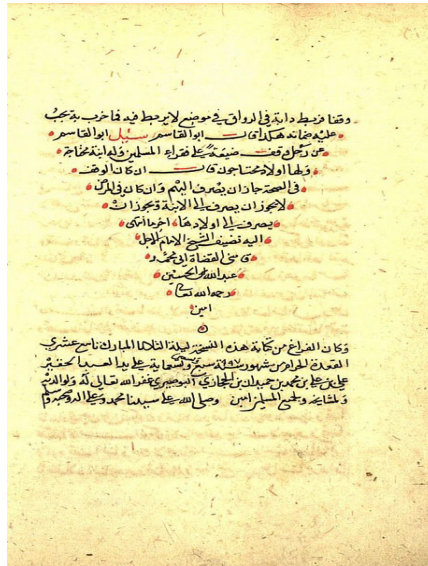 وقفا فربط دابة في الرواق في موضع لا يربط فيه فما خرب به يجب
عليه ضمانه هكذا قال ابو القاسم سئل ابو القاسم
عن رجل وقف ضيعة على فقراء المسلمين وله ابنة محتاجة
ولها اولاد محتاجون قال ان كان الوقف
في الصحة جاز ان يصرف اليهم وان كان في المرض
لا يجوز ان يصرف الى الابنة ويجوز ان
يصرف الى اولادها اخر ما انتهى
اليه تصنيف الشيخ الامام الاجل
قاضي القضاة ابي محمد
عبد الله بن الحسين
رحمه الله تعالى
امين
وكان الفراغ من كتابة هذه النسخة ليلة الثلاثا المبارك تاسع عشري
القعدة الحرام من شهور سنة وتسعماية على يد العبد الحقير
علي بن علي بن محمد بن حميدان بن الحجازي البوصيري غفر الله تعالى له ولوالديه
ولمشايخه ولجميع المسلمين امين وصلى الله على سيدنا محمد وعلى اله وصحبه وسلم